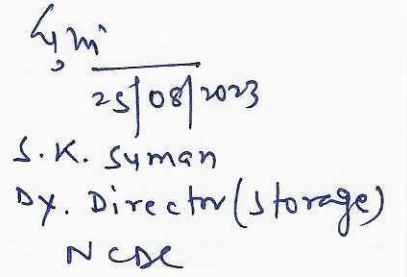 25/08/2023
S.K. Suman
Dy. Director (Storage)
NCDC